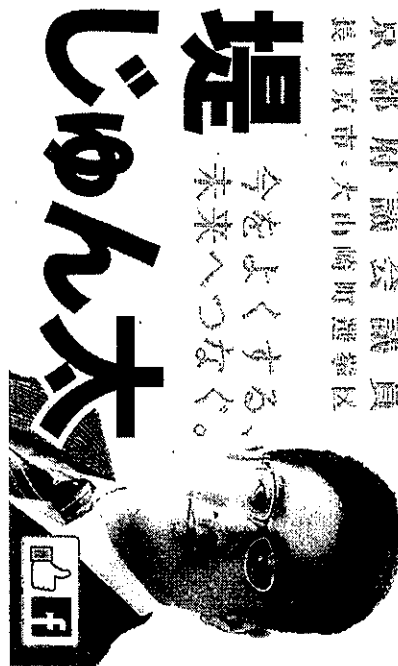 京都府議会議員
長岡京市・大山崎町選挙区
今をよくする、
未来へつなぐ。
堤
じゅん太
f